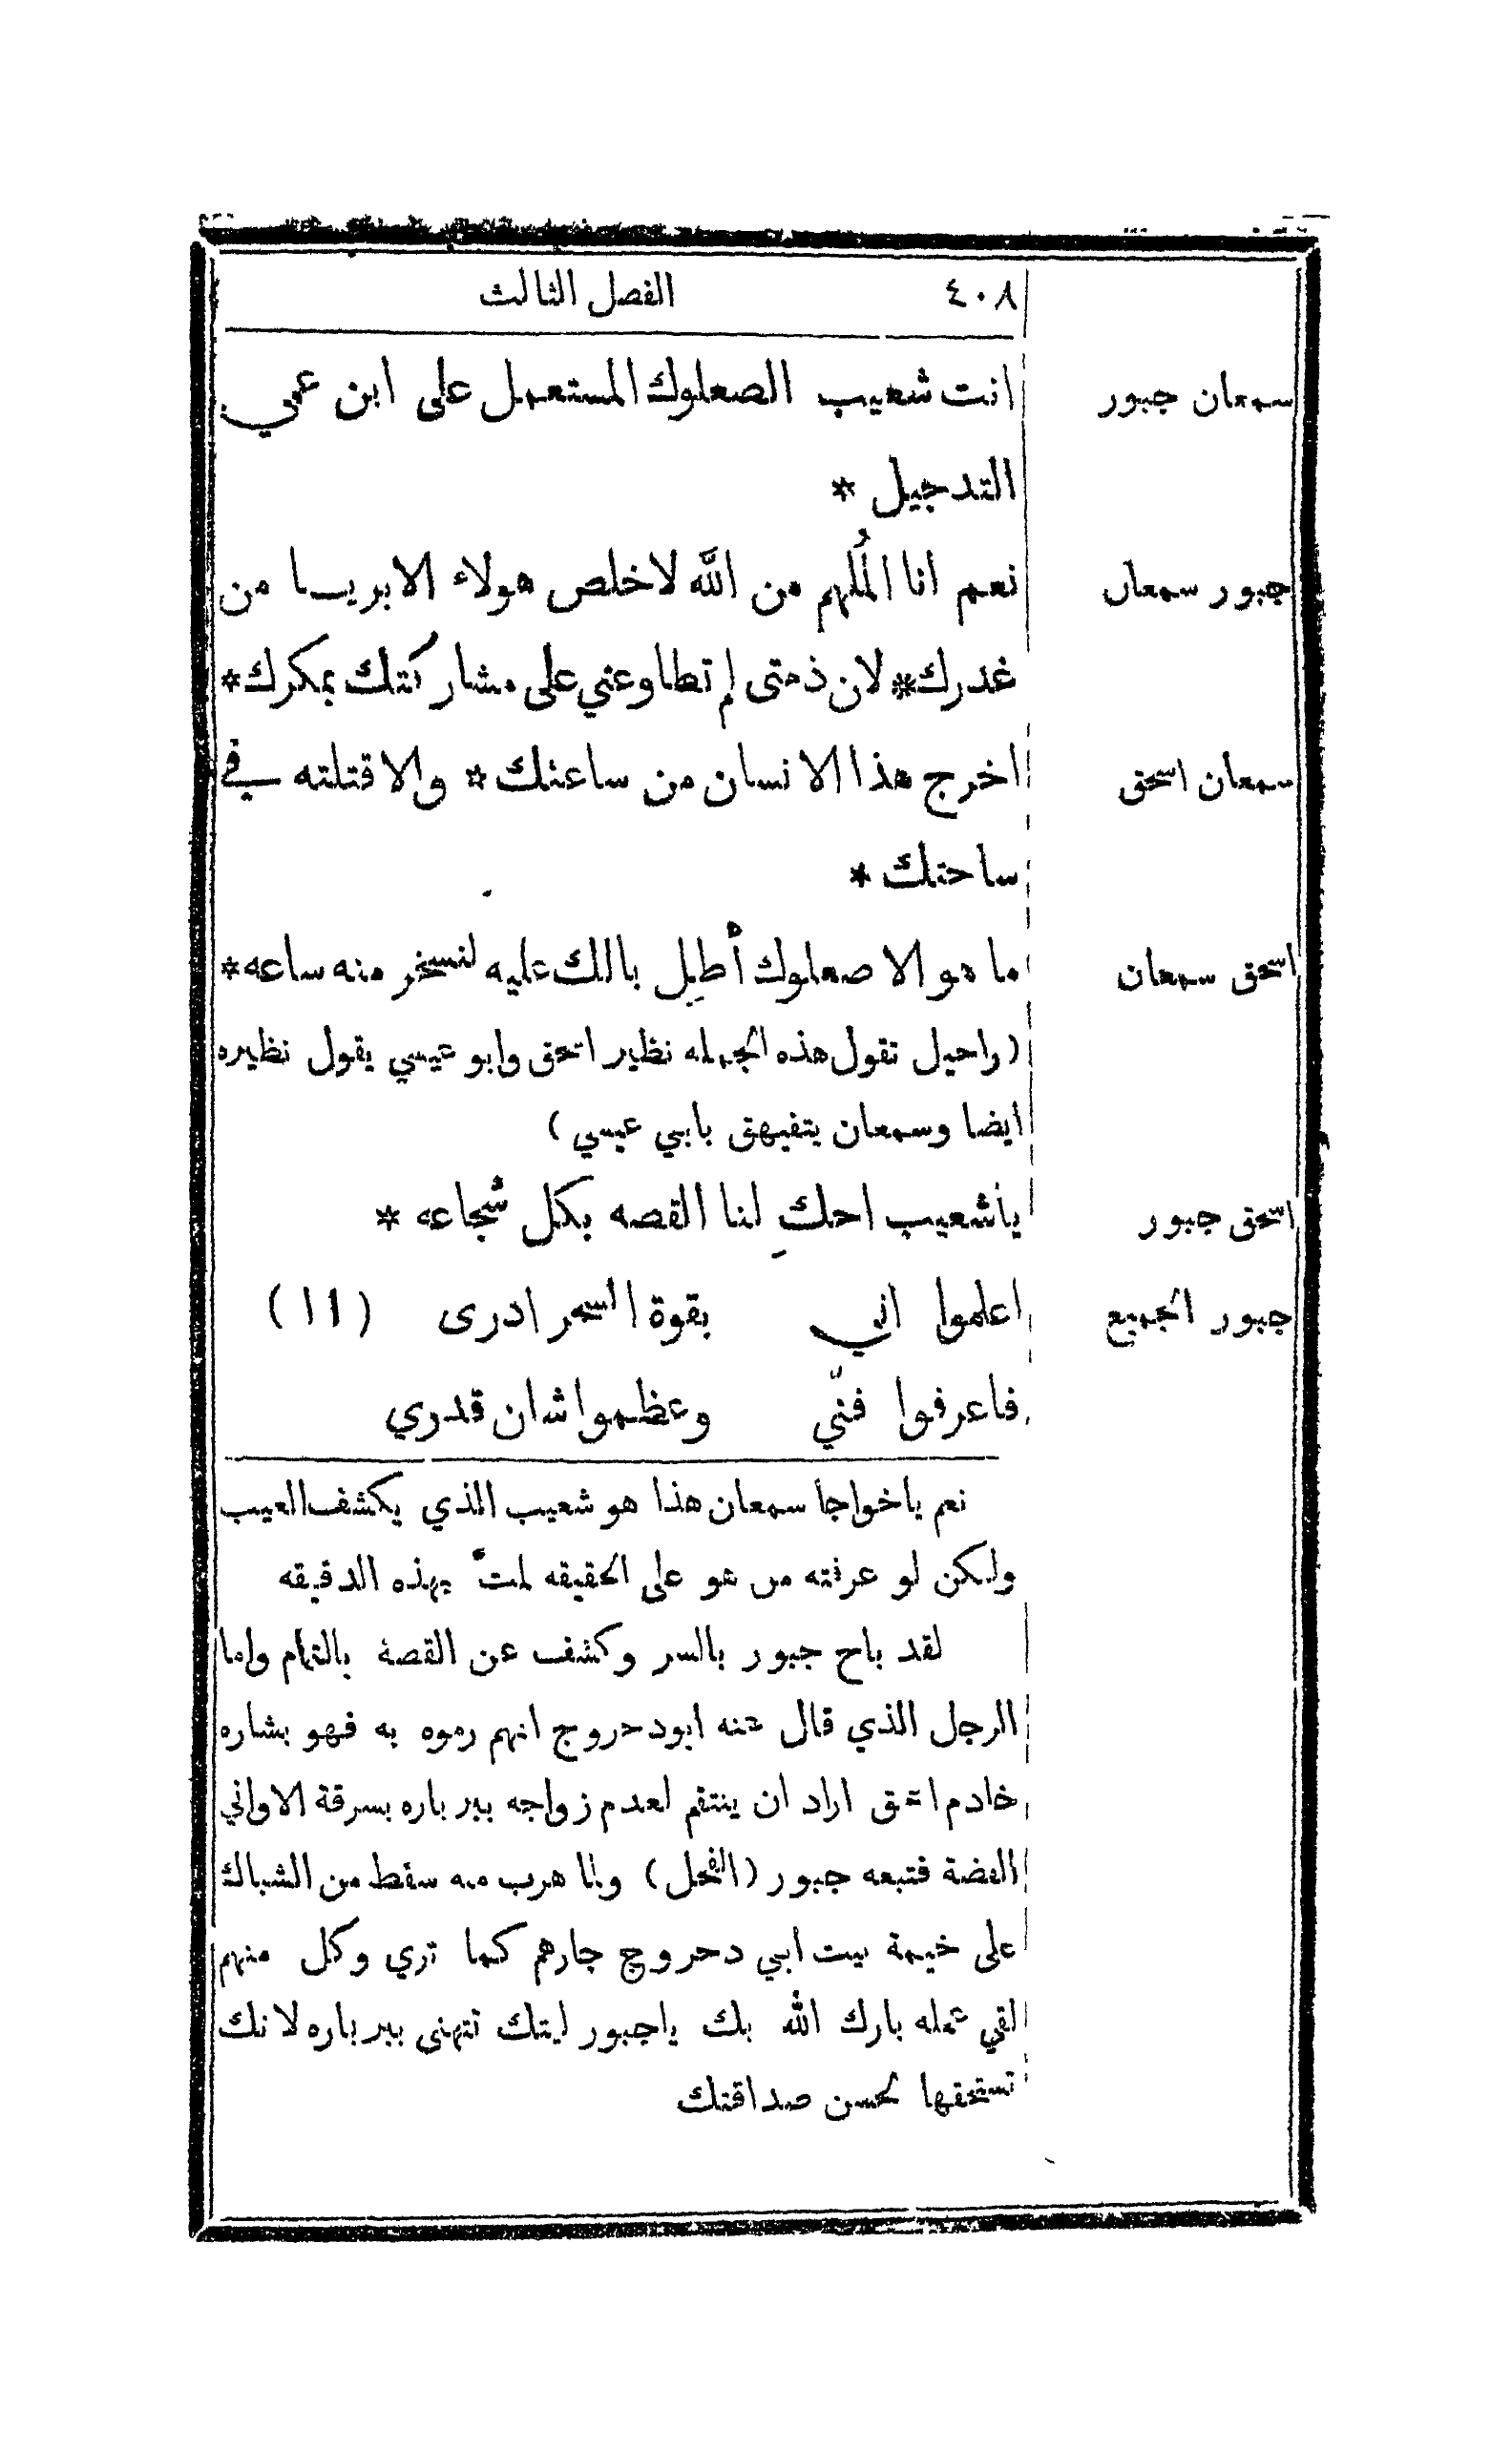 ٤٠٨ الفصل الثالث
سمعان جبور انت شعيب الصعلوك المستعمل على ابن عمي
التدجيل *
جبور سمعان نعم انا المُلهم من الله لاخلص هولاء الابريا من
غدرك* لان ذمتى لم تطاوعني على مشاركتك بمكرك*
سمعان اسحق اخرج هذا الانسان من ساعتك* والا قتلته في
ساحتك *
اسحق سمعان ما هو الا صعلوك أطِل بالك عليه لنسخر منه ساعه*
(راحيل تقول هذه الجمله نظير اسحق وابو عيسي يقول نظيره
ايضا وسمعان يتفيهق بابي عيسي)
اسحق جبور ياشعيب احكِ لنا القصه بكل شجاعه *
جبور الجميع اعلموا اني بقوة السحر ادرى (١١)
فاعرفوا فنّي وعظموا شان قدري
نعم ياخواجا سمعان هذا هو شعيب الذي يكشف العيب
ولكن لو عرفته من هو على الحقيقه لمت بهذه الدقيقه
لقد باح جبور بالسر وكشف عن القصة بالتمام واما
الرجل الذي قال عنه ابودحروج انهم رموه به فهو بشاره
خادم اسحق اراد ان ينتقم لعدم زواجه ببرباره بسرقة الاواني
الفضة فتبعه جبور (الفحل) ولما هرب منه سقط من الشباك
على خيمة بيت ابي دحروج جارهم كما تري وكل منهم
لقي عمله بارك الله بك ياجبور ليتك تتهنى ببرباره لانك
تستحقها لحسن صداقتك